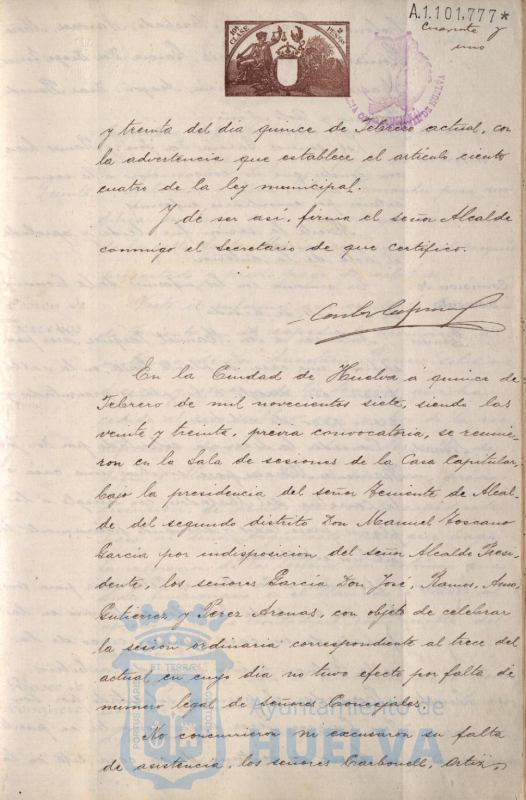 A.1.101.777*
Cuarenta y
uno
10ª CLASE
2 PESETAS
y treinta del dia quince de Febrero actual, con
la advertencia que establece el artículo ciento
cuatro de la ley municipal.
Y de ser así, firma el señor Alcalde
conmigo el Secretario de que certifico.
En la Ciudad de Huelva á quince de
Febrero de mil novecientos siete, siendo las
veinte y treinta, previa convocatoria, se reunie-
ron en la Sala de sesiones de la Casa Capitular,
bajo la presidencia del señor Teniente de Alcal-
de del segundo distrito Don Manuel Toscano
Garcia por indisposicion del señor Alcalde Presi-
dente, los señores Garcia Don José, Ramos,
Gutierrez y Perez Arenas, con objeto de celebrar
la sesion ordinaria correspondiente al trece del
actual, en cuyo dia no tuvo efecto por falta de
número legal de señores Concejales.
No concurrieron ni excusaron su falta
de asistencia, los señores Carbonell, Ortiz,
PORTUS MARIS ET TERRAE CUSTODIA
Ayuntamiento de
HUELVA